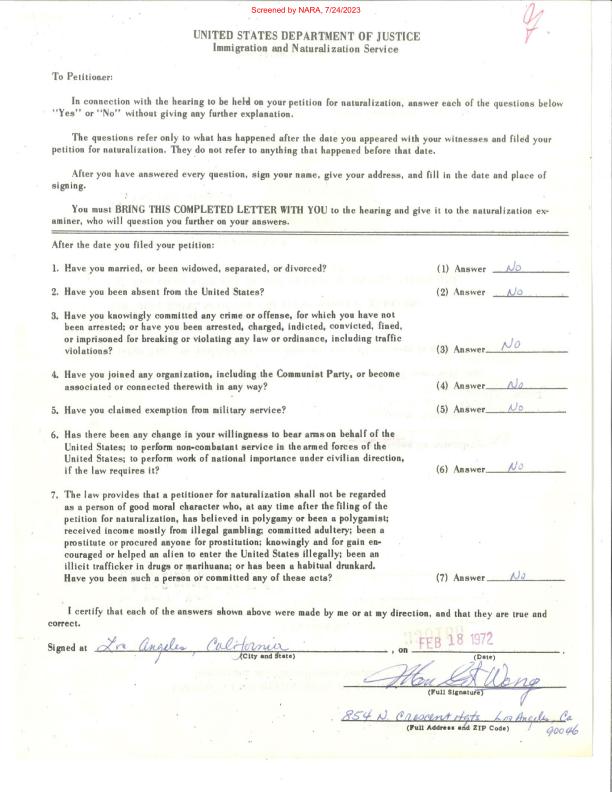 Screened by NARA, 7/24/2023
UNITED STATES DEPARTMENT OF JUSTICE
Immigration and Naturalization Service
To Petitioner:
In connection with the hearing to be held on your petition for naturalization, answer each of the questions below
"Yes" or "No" without giving any further explanation.
The questions refer only to what has happened after the date you appeared with your witnesses and filed your
petition for naturalization. They do not refer to anything that happened before that date.
After you have answered every question, sign your name, give your address, and fill in the date and place of
signing.
You must BRING THIS COMPLETED LETTER WITH YOU to the hearing and give it to the naturalization ex-
aminer, who will question you further on your answers.
After the date you filed your petition:
1. Have you married, or been widowed, separated, or divorced? (1) Answer No
2. Have you been absent from the United States? (2) Answer No
3. Have you knowingly committed any crime or offense, for which you have not
been arrested; or have you been arrested, charged, indicted, convicted, fined,
or imprisoned for breaking or violating any law or ordinance, including traffic
violations? (3) Answer No
4. Have you joined any organization, including the Communist Party, or become
associated or connected therewith in any way? (4) Answer No
5. Have you claimed exemption from military service? (5) Answer No
6. Has there been any change in your willingness to bear arms on behalf of the
United States; to perform non-combatant service in the armed forces of the
United States; to perform work of national importance under civilian direction,
if the law requires it? (6) Answer No
7. The law provides that a petitioner for naturalization shall not be regarded
as a person of good moral character who, at any time after the filing of the
petition for naturalization, has believed in polygamy or been a polygamist;
received income mostly from illegal gambling; committed adultery; been a
prostitute or procured anyone for prostitution; knowingly and for gain en-
couraged or helped an alien to enter the United States illegally; been an
illicit trafficker in drugs or marihuana; or has been a habitual drunkard.
Have you been such a person or committed any of these acts? (7) Answer No
I certify that each of the answers shown above were made by me or at my direction, and that they are true and
correct.
Signed at Los Angeles, California, on FEB 18 1972
(City and State) (Date)
Wong
(Full Signature)
854 N. Crescent Hgts Los Angeles, Ca
(Full Address and ZIP Code) 90046